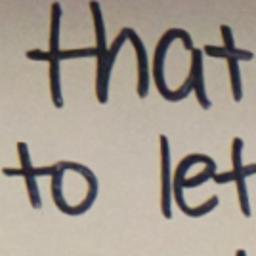 that
to let